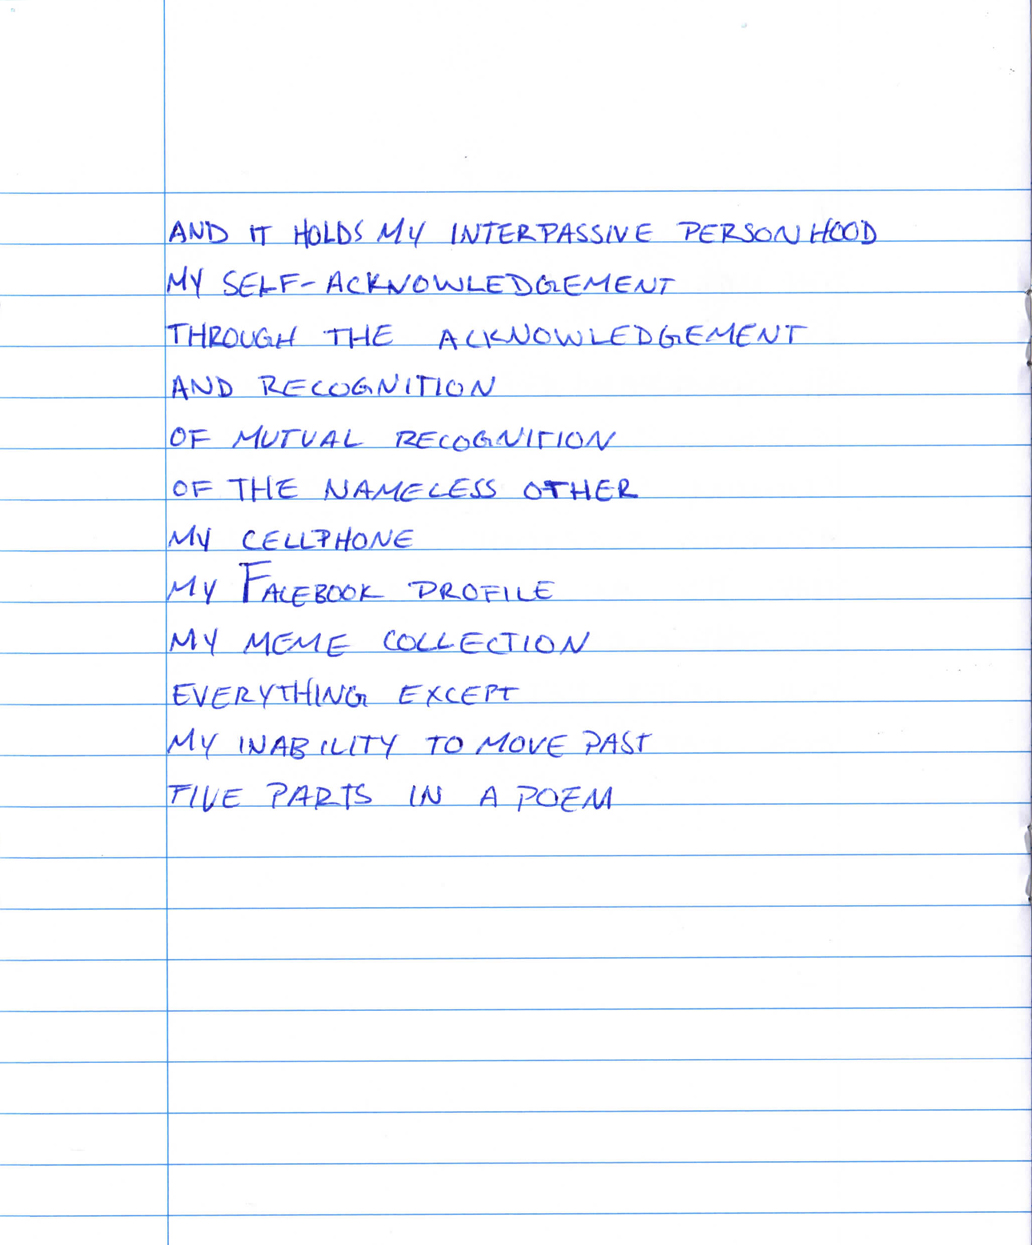 AND IT HOLDS MY INTERPASSIVE PERSONHOOD
MY SELF-ACKNOWLEDGEMENT
THROUGH THE ACKNOWLEDGEMENT
AND RECOGNITION
OF MUTUAL RECOGNITION
OF THE NAMELESS OTHER
MY CELLPHONE
MY FACEBOOK PROFILE
MY MEME COLLECTION
EVERYTHING EXCEPT
MY INABILITY TO MOVE PAST
FIVE PARTS IN A POEM